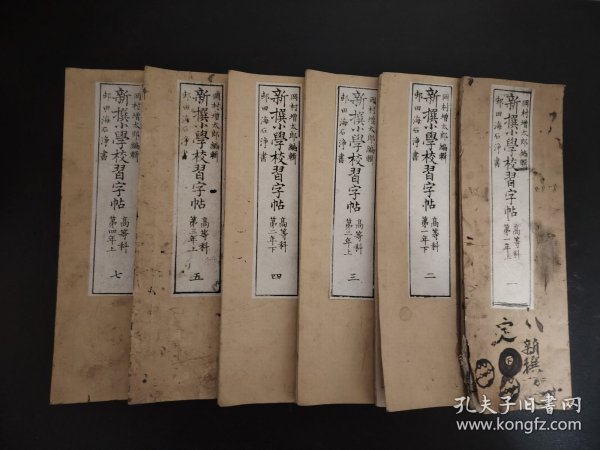 岡村增太郎編輯
邨田海石淨書
新撰小學校習字帖
高等科
第一年上
一
八
新撰
定
岡村增太郎編輯
邨田海石淨書
新撰小學校習字帖
高等科
第一年下
二
岡村增太郎編輯
邨田海石淨書
新撰小學校習字帖
高等科
第二年上
三
岡村增太郎編輯
邨田海石淨書
新撰小學校習字帖
高等科
第二年下
四
岡村增太郎編輯
邨田海石淨書
新撰小學校習字帖
高等科
第三年上
五
岡村增太郎編輯
邨田海石淨書
新撰小學校習字帖
高等科
第四年上
七
孔夫子旧书网
www.kongfz.com